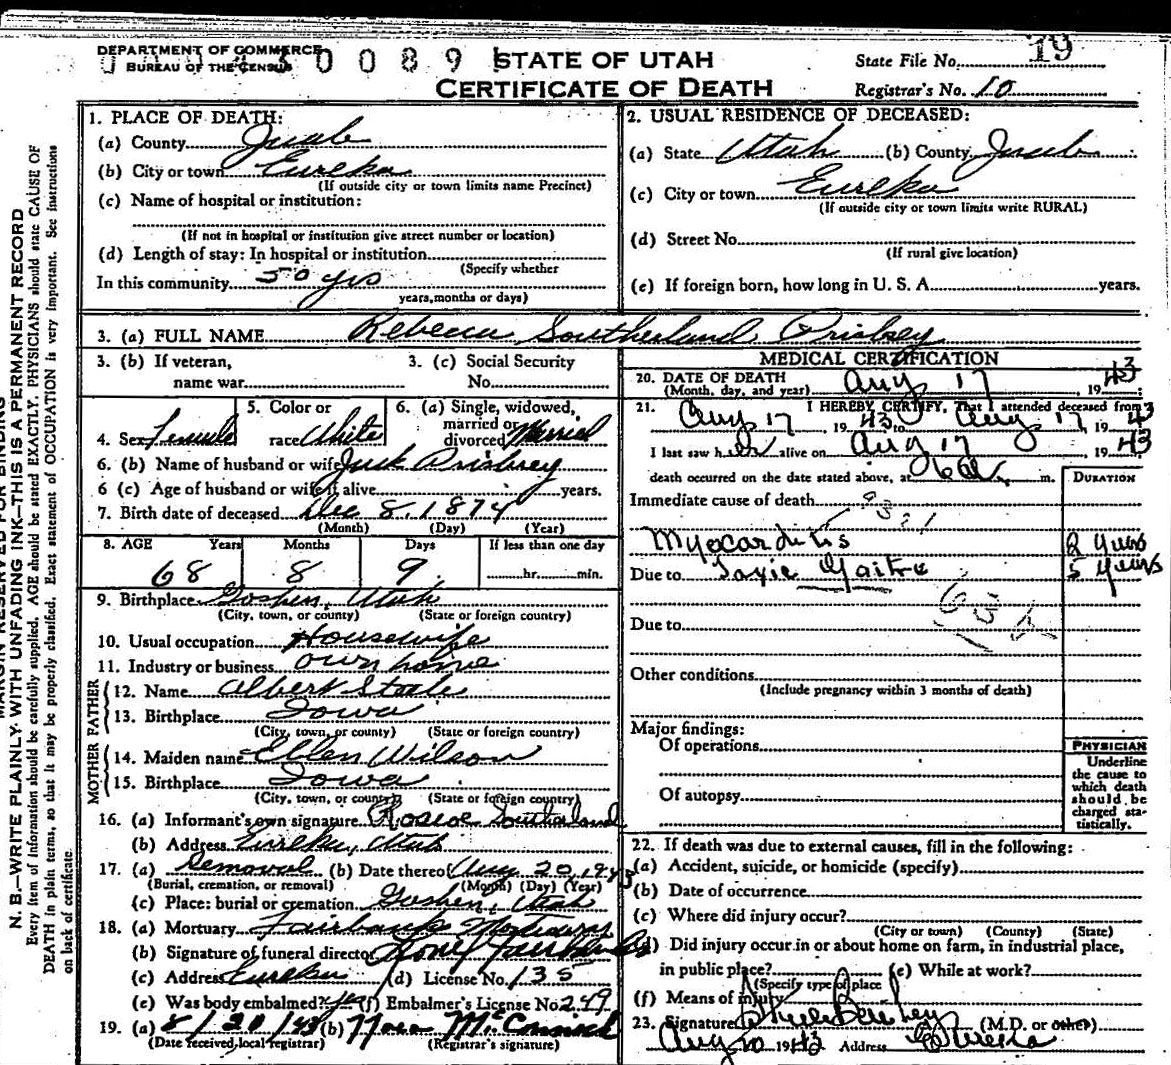 DEPARTMENT OF COMMERCE
BUREAU OF THE CENSUS
0 0 8 9
STATE OF UTAH
CERTIFICATE OF DEATH
State File No. 19
Registrar's No. 10
MARGIN RESERVED FOR BINDING
N. B.—WRITE PLAINLY WITH UNFADING INK—THIS IS A PERMANENT RECORD
Every item of information should be carefully supplied. AGE should be stated EXACTLY. PHYSICIANS should state CAUSE OF
DEATH in plain terms, so that it may be properly classified. Exact statement of OCCUPATION is very important. See instructions
on back of certificate.
1. PLACE OF DEATH:
(a) County Juab
(b) City or town Eureka
(If outside city or town limits name Precinct)
(c) Name of hospital or institution:
(If not in hospital or institution give street number or location)
(d) Length of stay: In hospital or institution
(Specify whether
In this community 50 yrs
years, months or days)
2. USUAL RESIDENCE OF DECEASED:
(a) State Utah (b) County Juab
(c) City or town Eureka
(If outside city or town limits write RURAL)
(d) Street No.
(If rural give location)
(e) If foreign born, how long in U. S. A. years.
3. (a) FULL NAME Rebecca Southerland Prisbrey
3. (b) If veteran,
name war
3. (c) Social Security
No.
4. Sex Female
5. Color or
race White
6. (a) Single, widowed,
married or
divorced Married
6. (b) Name of husband or wife Jack Prisbrey
6 (c) Age of husband or wife if alive years.
7. Birth date of deceased Dec 8, 1874
(Month) (Day) (Year)
8. AGE Years Months Days If less than one day
68 8 9 hr. min.
9. Birthplace Goshen, Utah
(City, town, or county) (State or foreign country)
10. Usual occupation Housewife
11. Industry or business own home
FATHER
12. Name Albert Steele
13. Birthplace Iowa
(City, town, or county) (State or foreign country)
MOTHER
14. Maiden name Ellen Wilson
15. Birthplace Iowa
(City, town, or county) (State or foreign country)
16. (a) Informant's own signature Roscoe Southerland
(b) Address Eureka, Utah
17. (a) Removal (b) Date thereof Aug 20, 1943
(Burial, cremation, or removal) (Month) (Day) (Year)
(c) Place: burial or cremation Goshen, Utah
18. (a) Mortuary Fairbanks Mortuary
(b) Signature of funeral director Fairbanks
(c) Address Eureka (d) License No. 135
(e) Was body embalmed? yes (f) Embalmer's License No. 249
19. (a) 8/20/43 (b) Nora McConnell
(Date received local registrar) (Registrar's signature)
MEDICAL CERTIFICATION
20. DATE OF DEATH
(Month, day, and year) Aug 17, 1943
21. I HEREBY CERTIFY, That I attended deceased from
Aug 17, 1943 to Aug 17, 1943
I last saw her alive on Aug 17, 1943
death occurred on the date stated above, at m.
DURATION
Immediate cause of death 93.1
Myocarditis 2 years
Due to Toxic Goitre 5 years
Due to
Other conditions
(Include pregnancy within 3 months of death)
Major findings:
Of operations
Of autopsy
PHYSICIAN
Underline
the cause to
which death
should be
charged sta-
tistically.
22. If death was due to external causes, fill in the following:
(a) Accident, suicide, or homicide (specify)
(b) Date of occurrence
(c) Where did injury occur?
(City or town) (County) (State)
(d) Did injury occur in or about home on farm, in industrial place,
in public place? (e) While at work?
(Specify type of place
(f) Means of injury
23. Signature (M.D. or other)
Aug 20 1943 Address Eureka